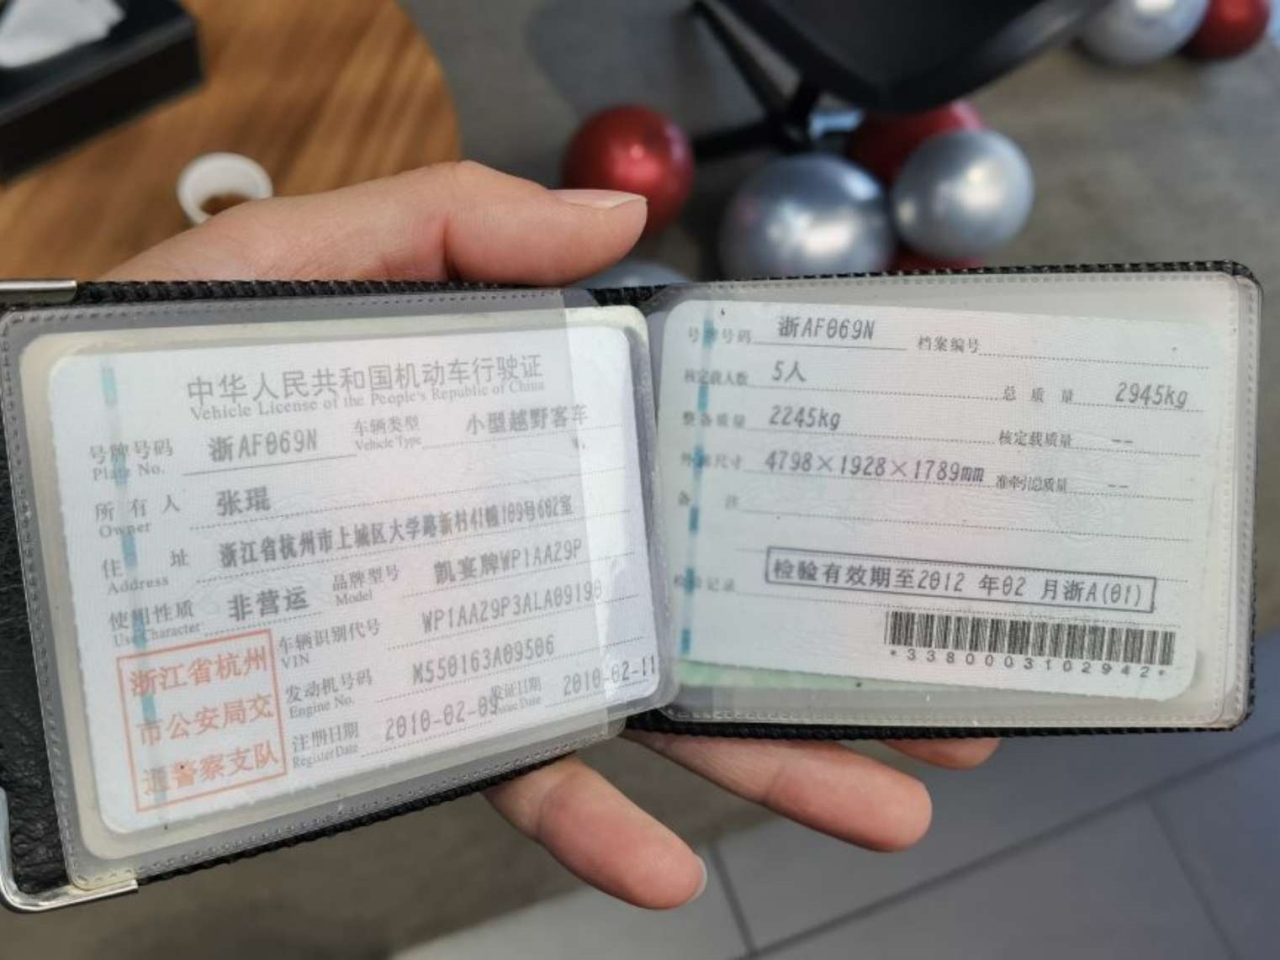 中华人民共和国机动车行驶证
Vehicle License of the People's Republic of China
号牌号码 浙AF069N 车辆类型 小型越野客车
Plate No. Vehicle Type
所有人 张琨
Owner
住址 浙江省杭州市上城区大学路新村41幢109号602室
Address
使用性质 非营运 品牌型号 凯宴牌WP1AA29P
Use Character Model
车辆识别代号 WP1AA29P3ALA09190
VIN
发动机号码 M550163A09506
Engine No.
注册日期 2010-02-09 发证日期 2010-02-11
Register Date Issue Date
浙江省杭州
市公安局交
通警察支队
号牌号码 浙AF069N 档案编号
核定载人数 5人 总质量 2945kg
整备质量 2245kg 核定载质量 --
外廓尺寸 4798×1928×1789mm 准牵引总质量 --
备注
检验记录 检验有效期至2012 年02 月浙A(01)
*3380003102942*